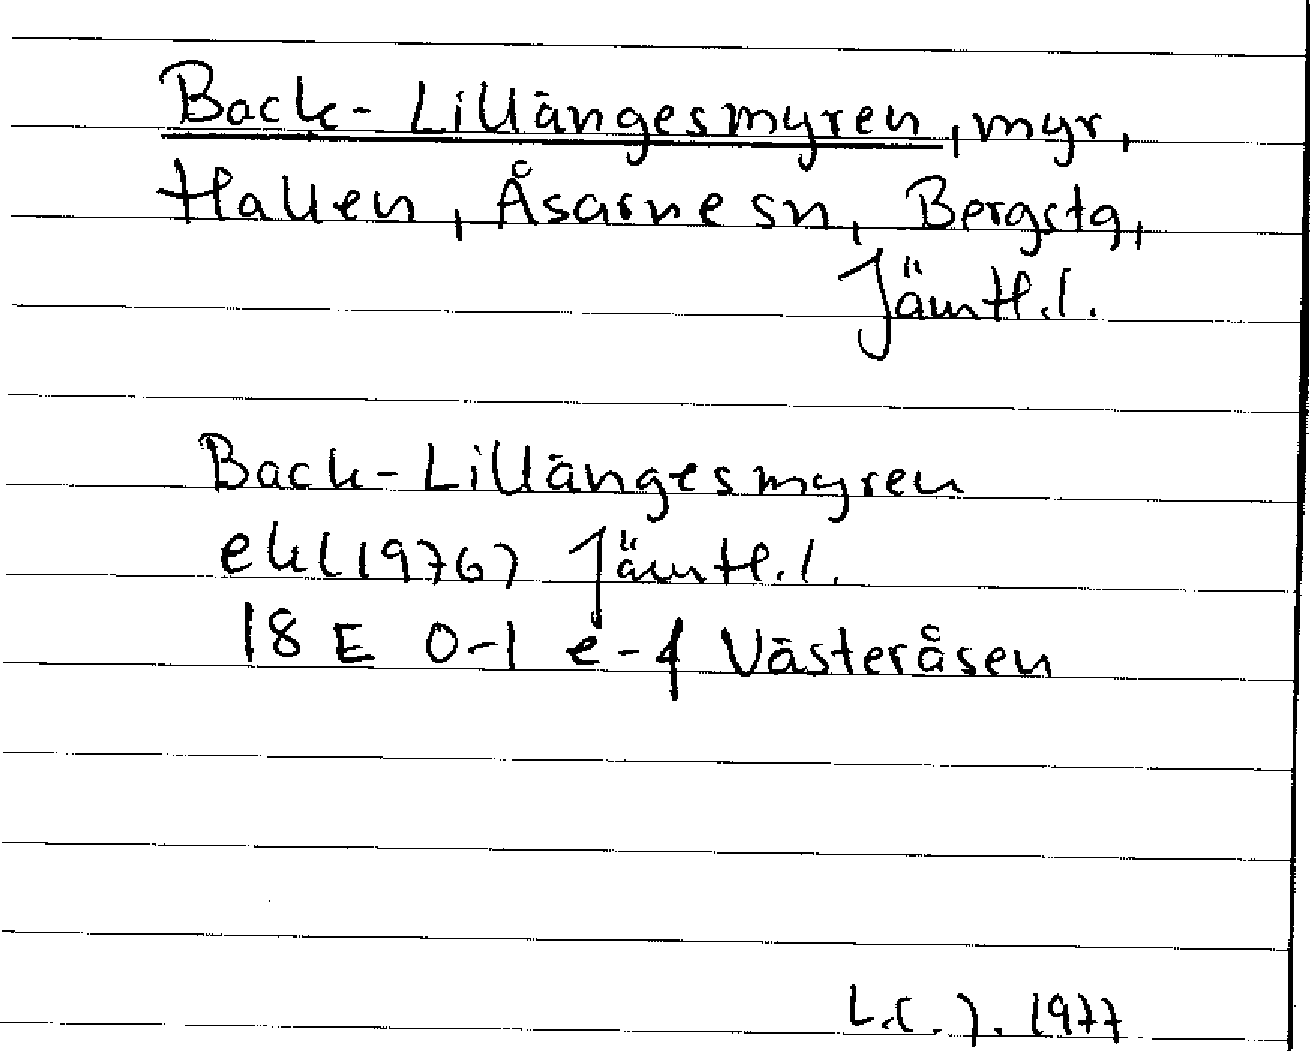 Back-Lillängesmyren, myr,
Hallen, Åsarne sn, Bergs tg,
Jämtl.l.
Back-Lillängesmyren
ek(1976) Jämtl.l.
18 E 0-1 e-f Västeråsen
1977